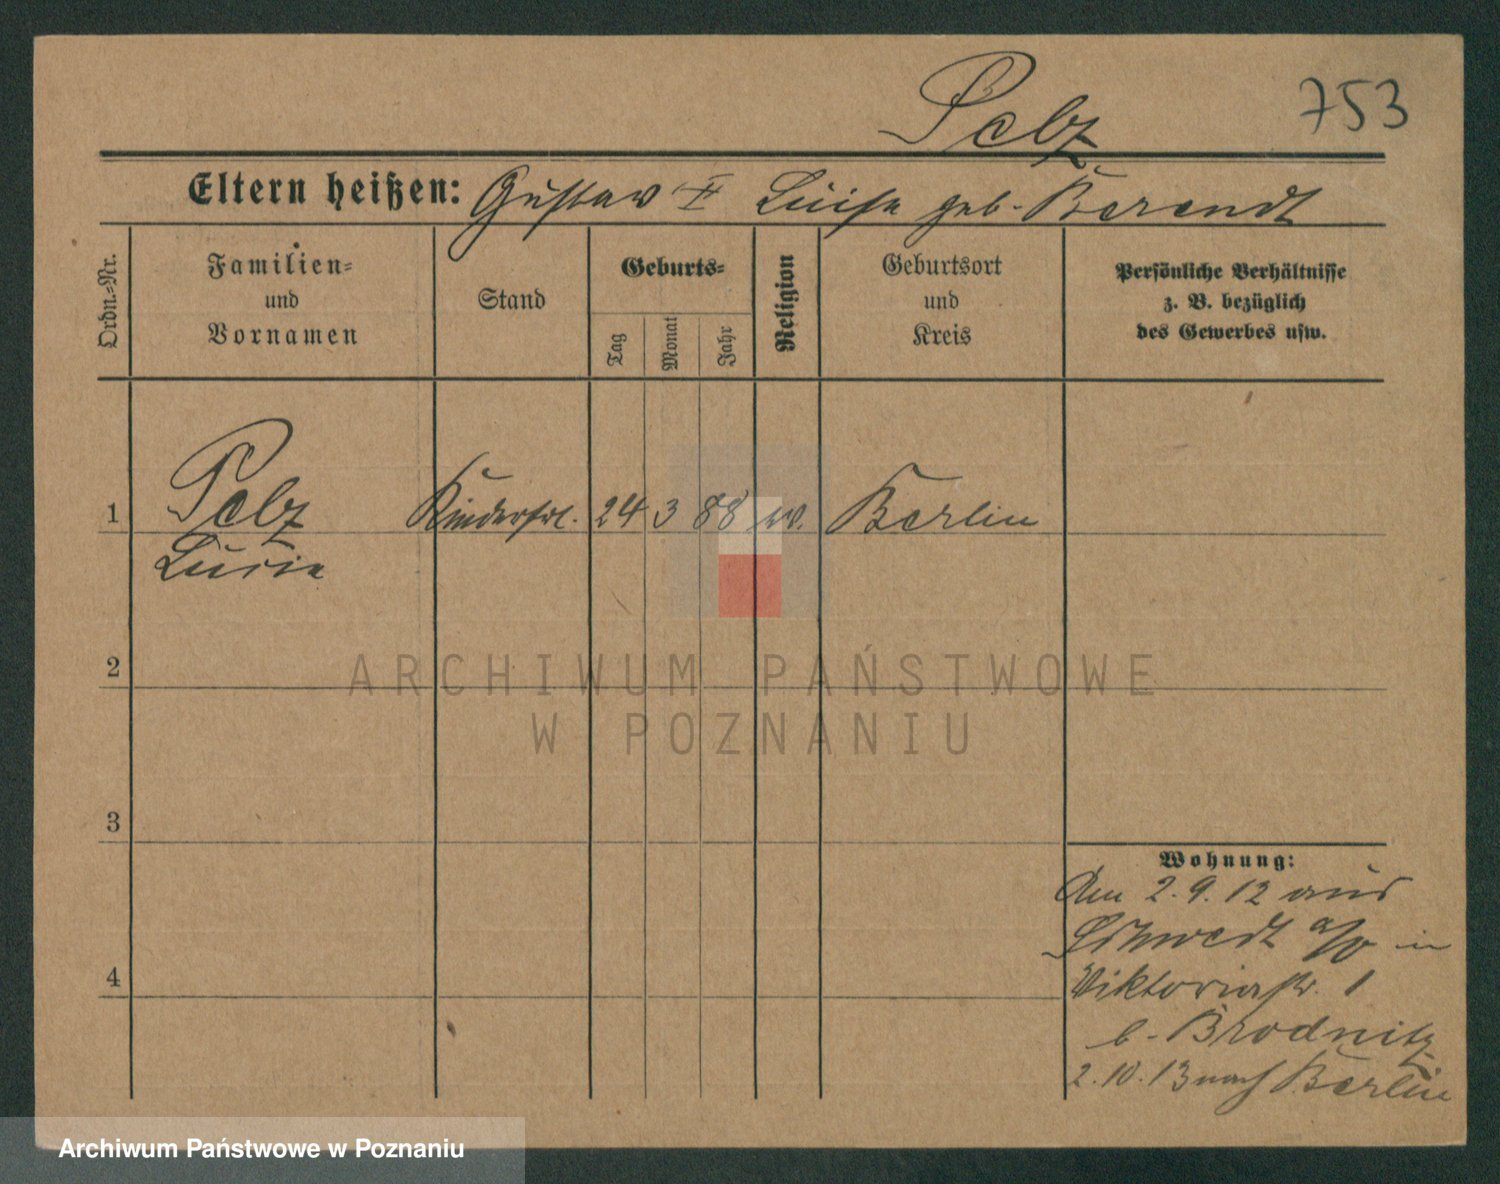 Pelz
753
Eltern heißen: Gustav † Luise geb. Berendt
Ordn.=Nr.
Familien=
und
Vornamen
Stand
Geburts=
Tag
Monat
Jahr
Religion
Geburtsort
und
Kreis
Persönliche Verhältnisse
z. B. bezüglich
des Gewerbes usw.
1
Pelz
Kinderfrl. 24 3 88 ev. Berlin
Lucie
2
3
4
Wohnung:
Am 2.9.12 aus
Schwedt a/O in
Viktoriastr. 1
b. Brodnitz
2.10.13 nach Berlin
ARCHIWUM PAŃSTWOWE
W POZNANIU
Archiwum Państwowe w Poznaniu